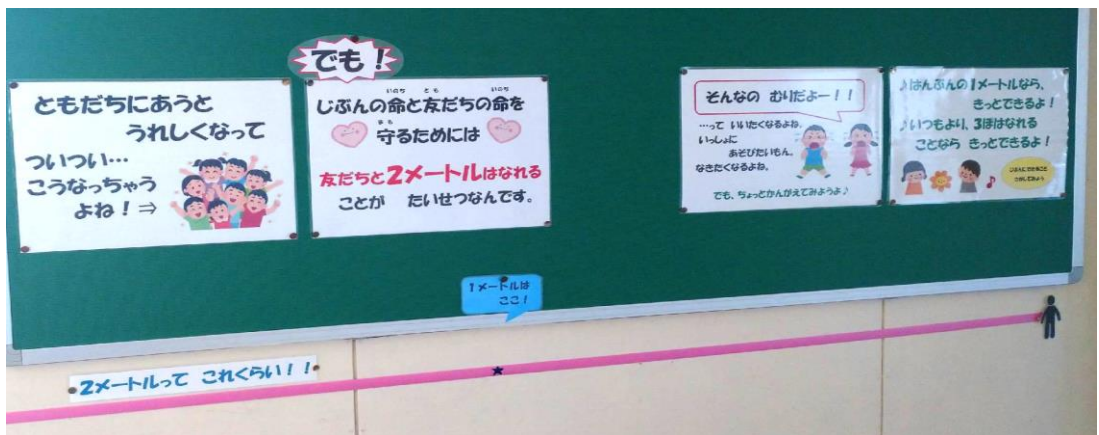 ともだちにあうと
うれしくなって
ついつい…
こうなっちゃう
よね！⇒
でも！
じぶんの命と友だちの命を
いのち とも いのち
守るためには
まも
友だちと2メートルはなれる
ことが たいせつなんです。
そんなの むりだよー！！
…って いいたくなるよね。
いっしょに
あそびたいもん。
なきたくなるよね。
でも、ちょっとかんがえてみようよ♪
♪はんぶんの1メートルなら、
きっとできるよ！
♪いつもより、3ぽはなれる
ことなら きっとできるよ！
1メートルは
ここ！
2メートルって これくらい！！